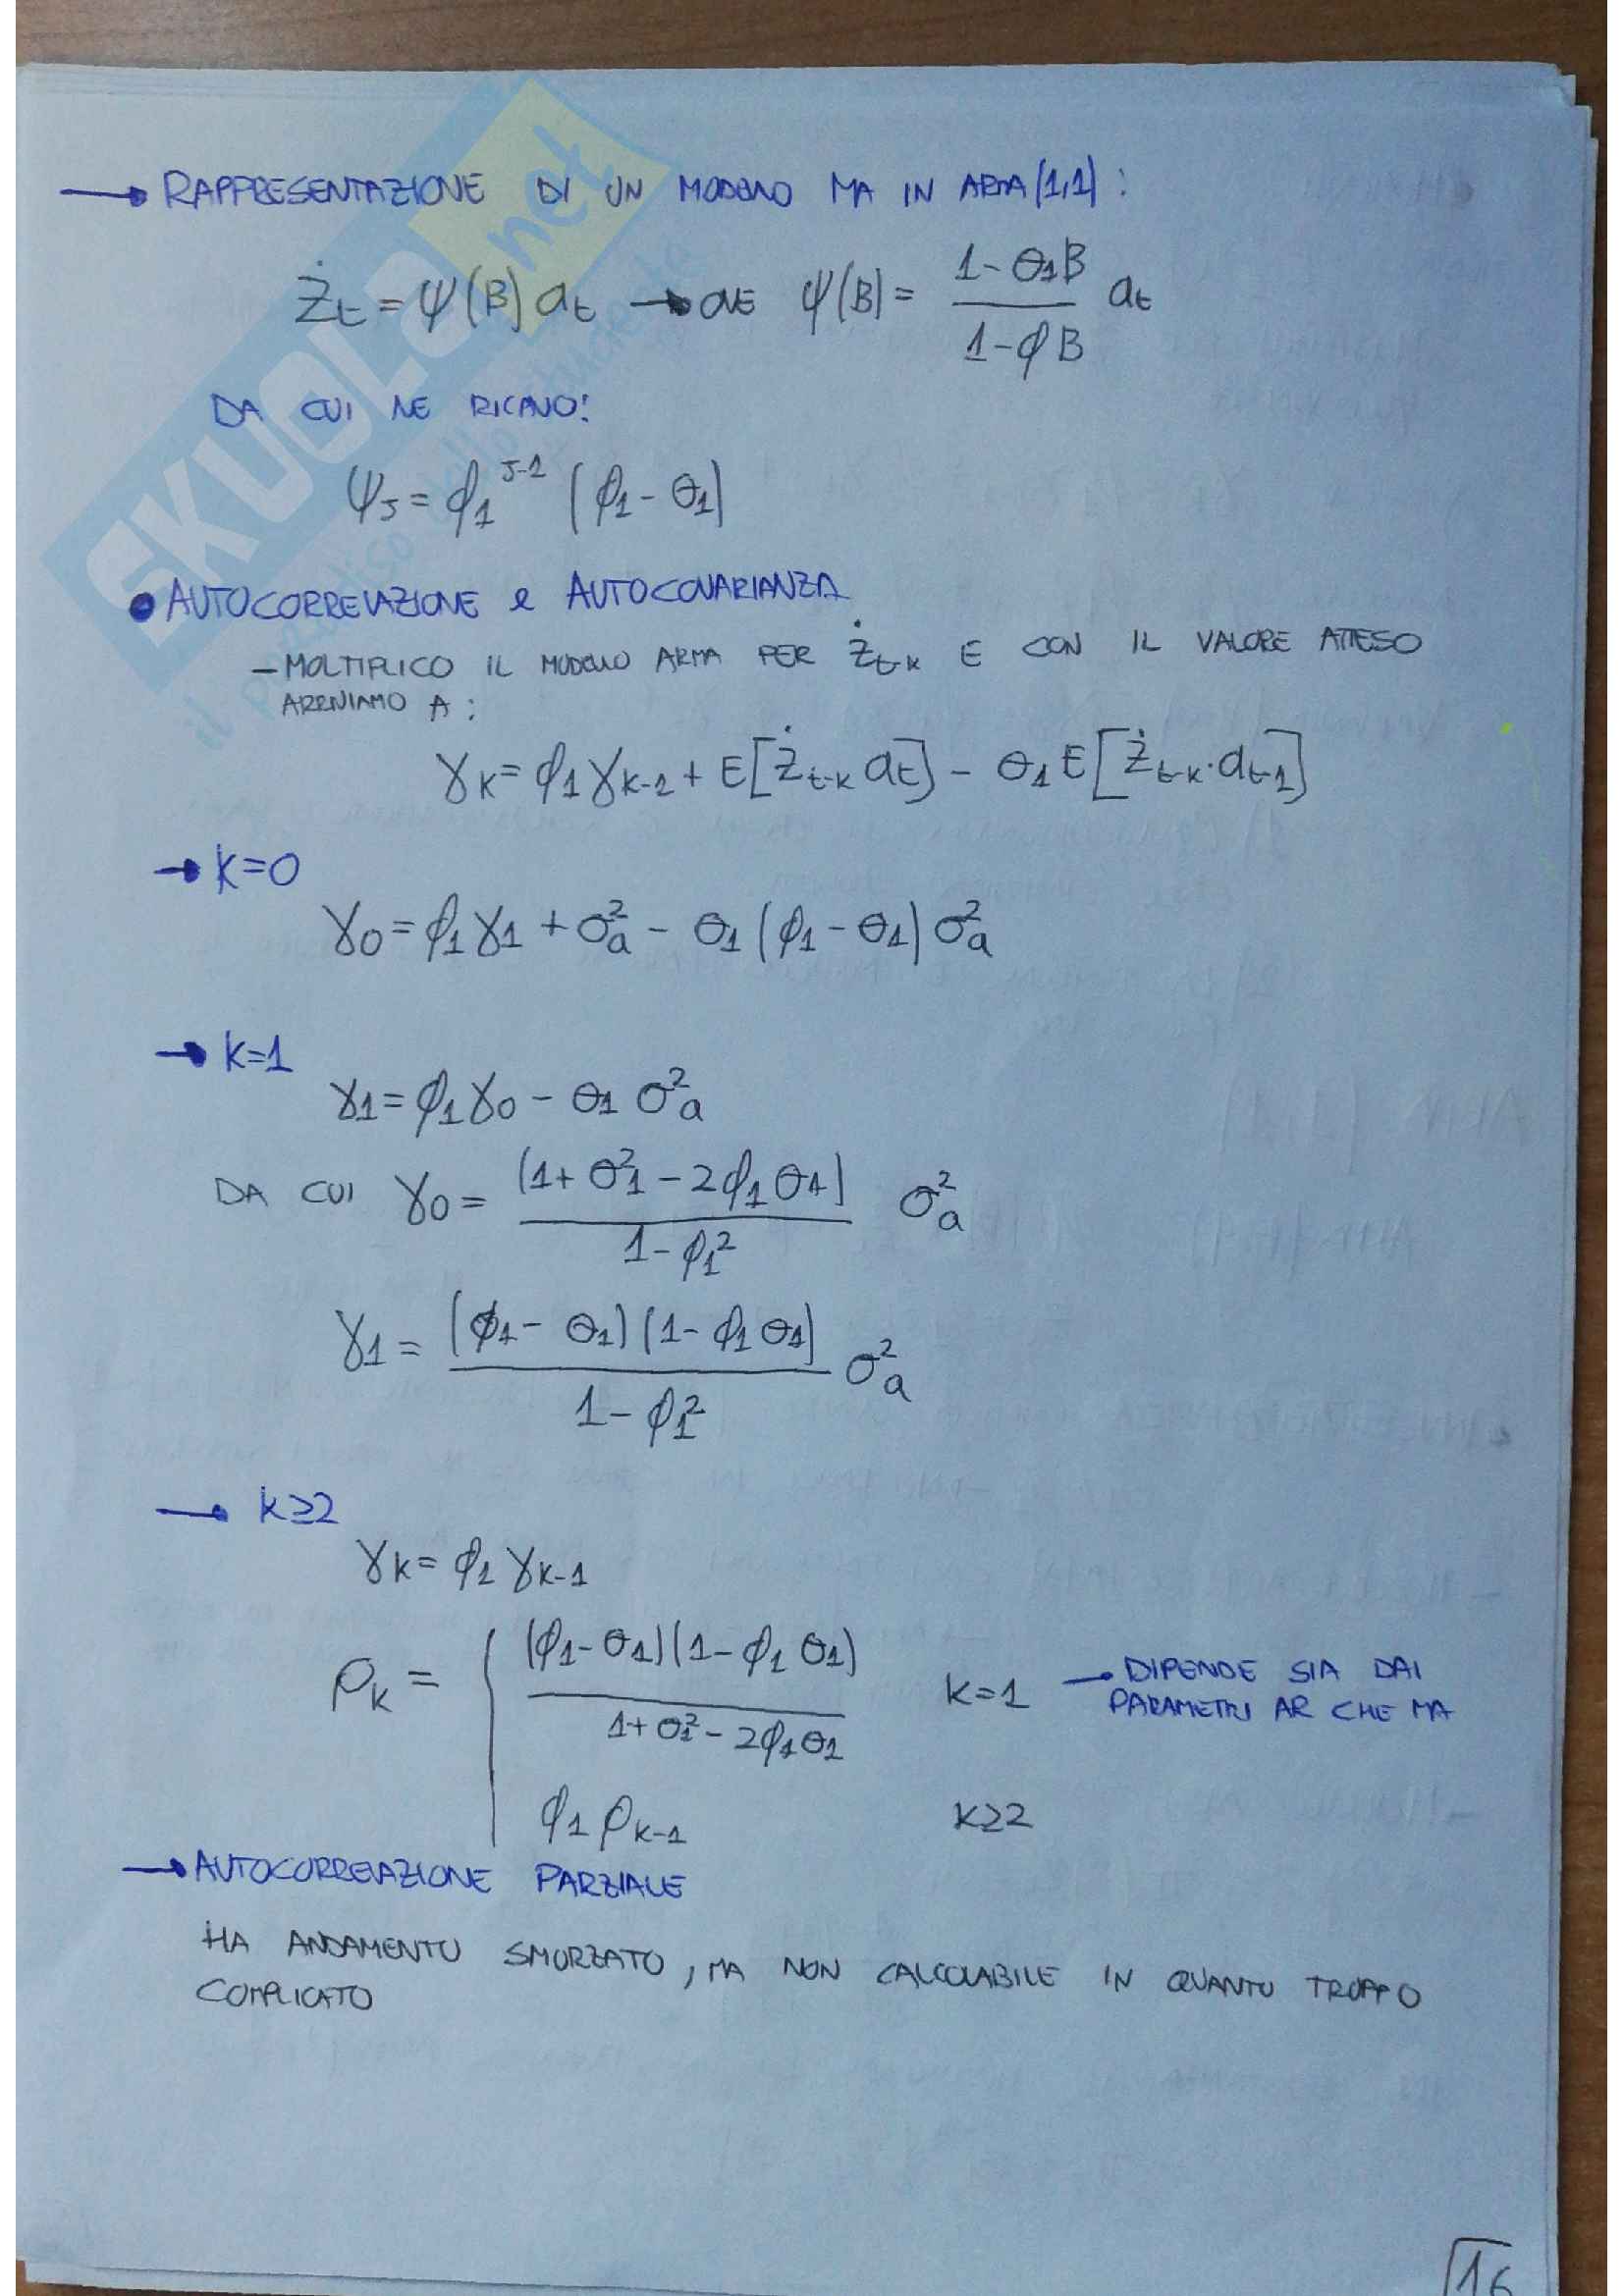 → RAPPRESENTAZIONE DI UN MODELLO MA IN ARMA(1,1):
Ż_t = ψ(B) a_t → OVE ψ(B) = (1-θ_1B)/(1-ϕB) a_t
DA CUI NE RICAVO:
ψ_J = ϕ_1^{J-1} (ϕ_1 - θ_1)
• AUTOCORRELAZIONE e AUTOCOVARIANZA
- MOLTIPLICO IL MODELLO ARMA PER Ż_{t-k} E CON IL VALORE ATTESO
ARRIVIAMO A:
γ_k = ϕ_1 γ_{k-1} + E[Ż_{t-k} a_t] - θ_1 E[Ż_{t-k}·a_{t-1}]
→ k=0
γ_0 = ϕ_1 γ_1 + σ²_a - θ_1 (ϕ_1 - θ_1) σ²_a
→ k=1
γ_1 = ϕ_1 γ_0 - θ_1 σ²_a
DA CUI γ_0 = (1 + θ²_1 - 2ϕ_1θ_1)/(1-ϕ_1²) σ²_a
γ_1 = (ϕ_1 - θ_1)(1-ϕ_1θ_1)/(1-ϕ_1²) σ²_a
→ k≥2
γ_k = ϕ_1 γ_{k-1}
ρ_k = { (ϕ_1-θ_1)(1-ϕ_1θ_1)/(1+θ_1²-2ϕ_1θ_1) k=1 → DIPENDE SIA DAI
PARAMETRI AR CHE MA
ϕ_1 ρ_{k-1} k≥2
→ AUTOCORRELAZIONE PARZIALE
HA ANDAMENTO SMORZATO, MA NON CALCOLABILE IN QUANTO TROPPO
COMPLICATO
16
SKUOLA.net
il paradiso dello studente